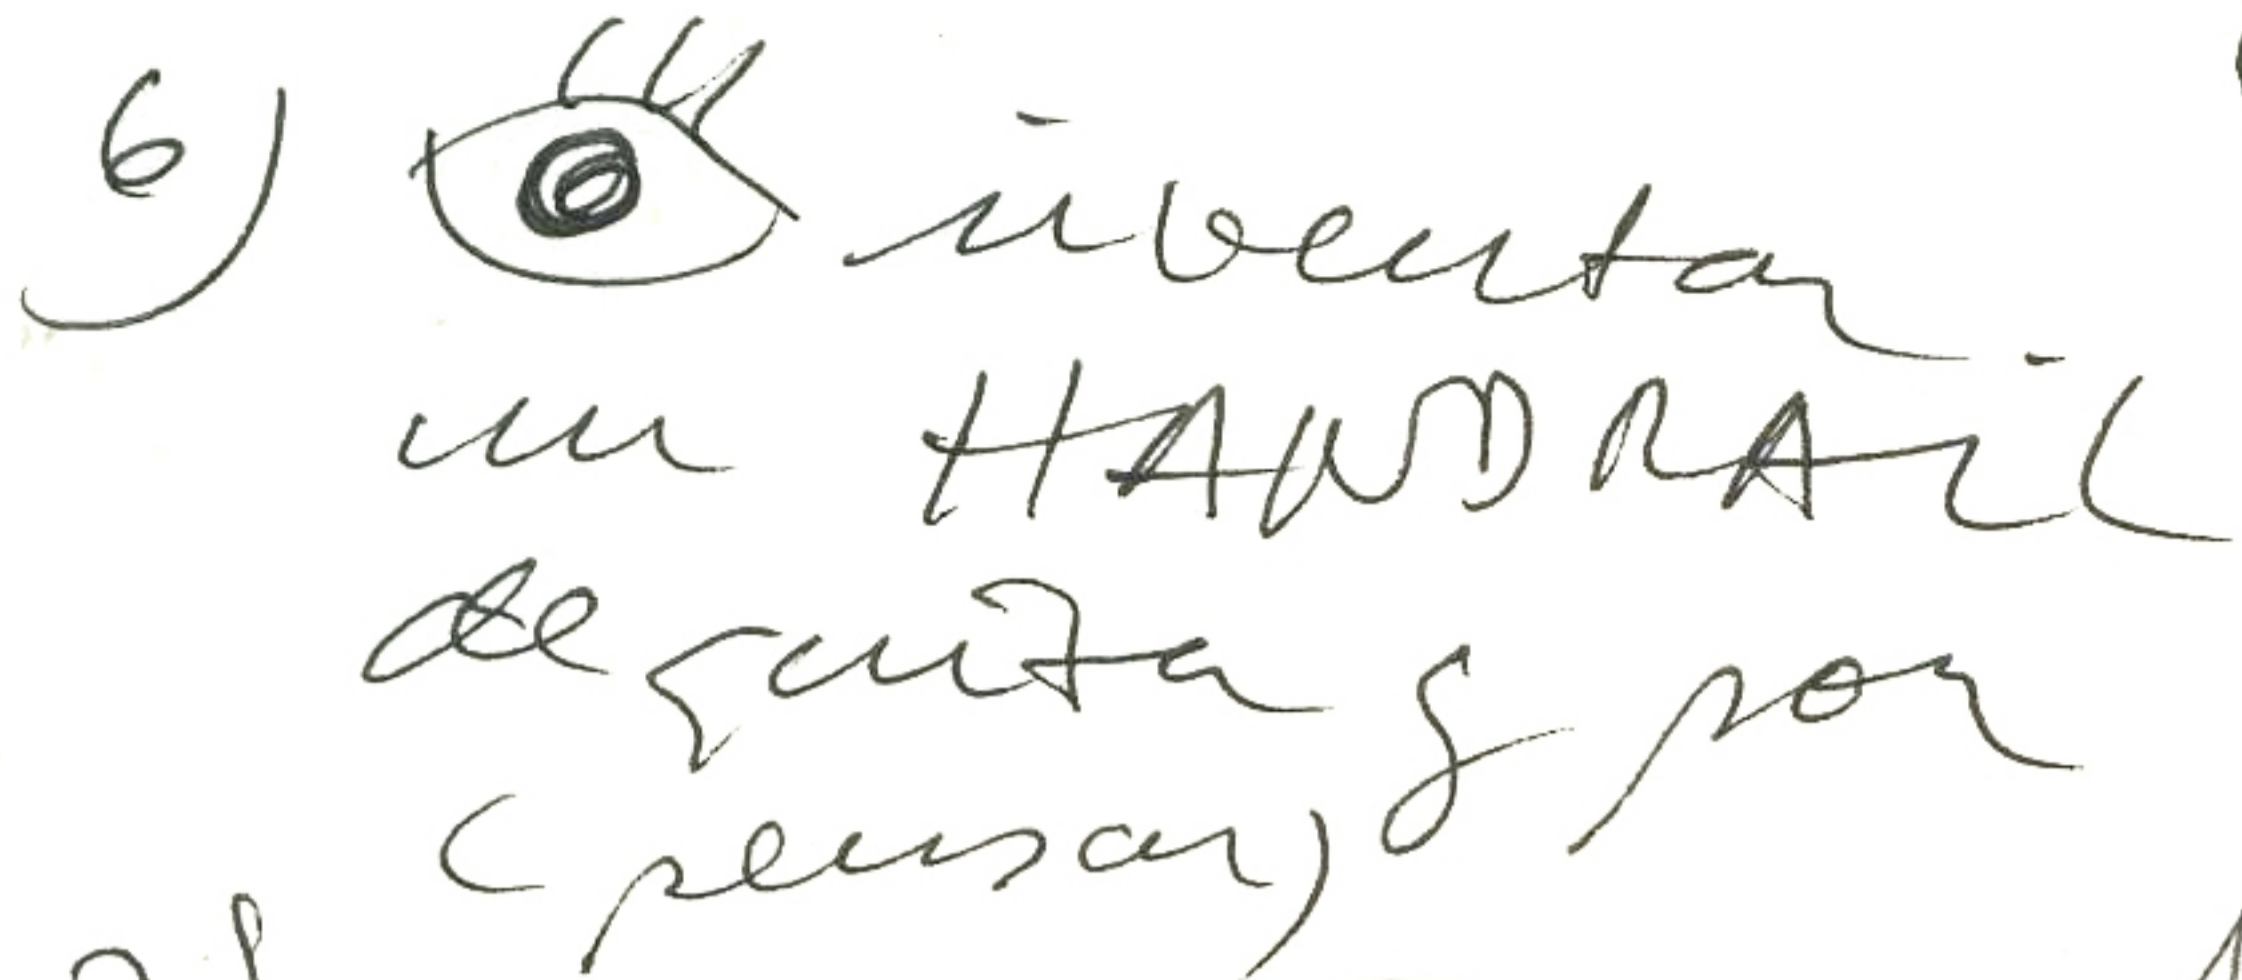 6) inventar
un HANDRAiL
de quita y pon
(pensar)